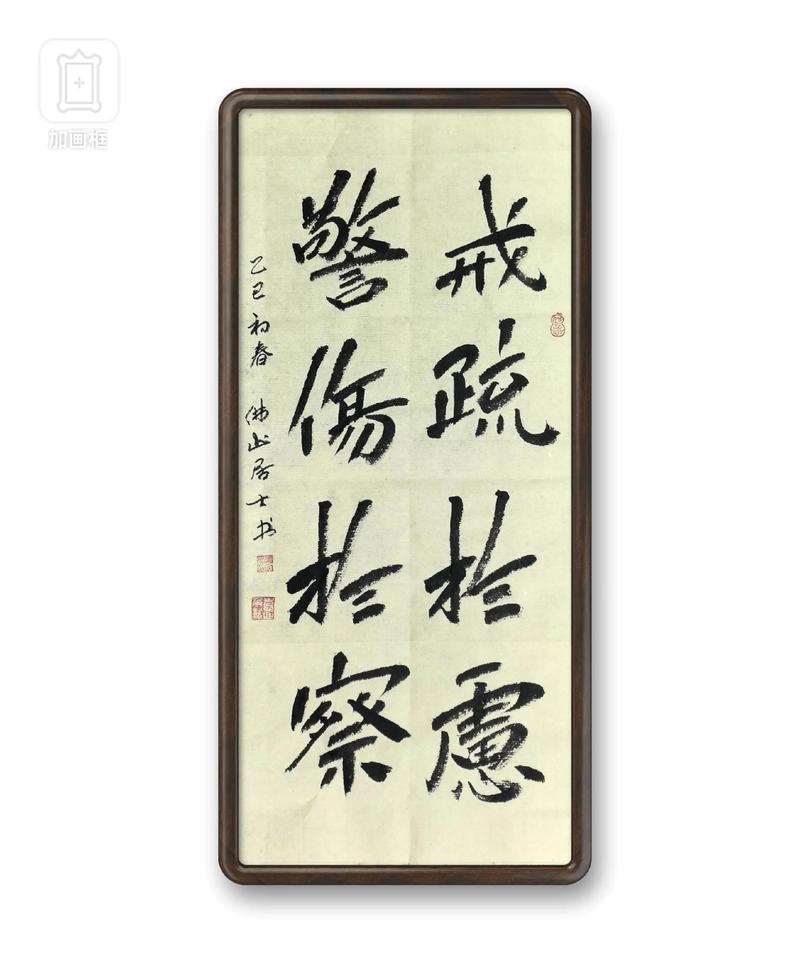 加画框
戒疏於慮
警傷於察
乙巳初春 佛山居士书